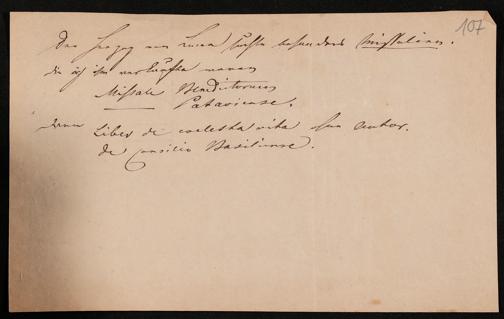 107
Der Herzog von Lucca suchte besonders Missalien.
die ich ihm verkaufte waren
Missale Benedictorum
Pataviense.
dann Liber de coelesta vita sein autor.
de consilio Basiliense.